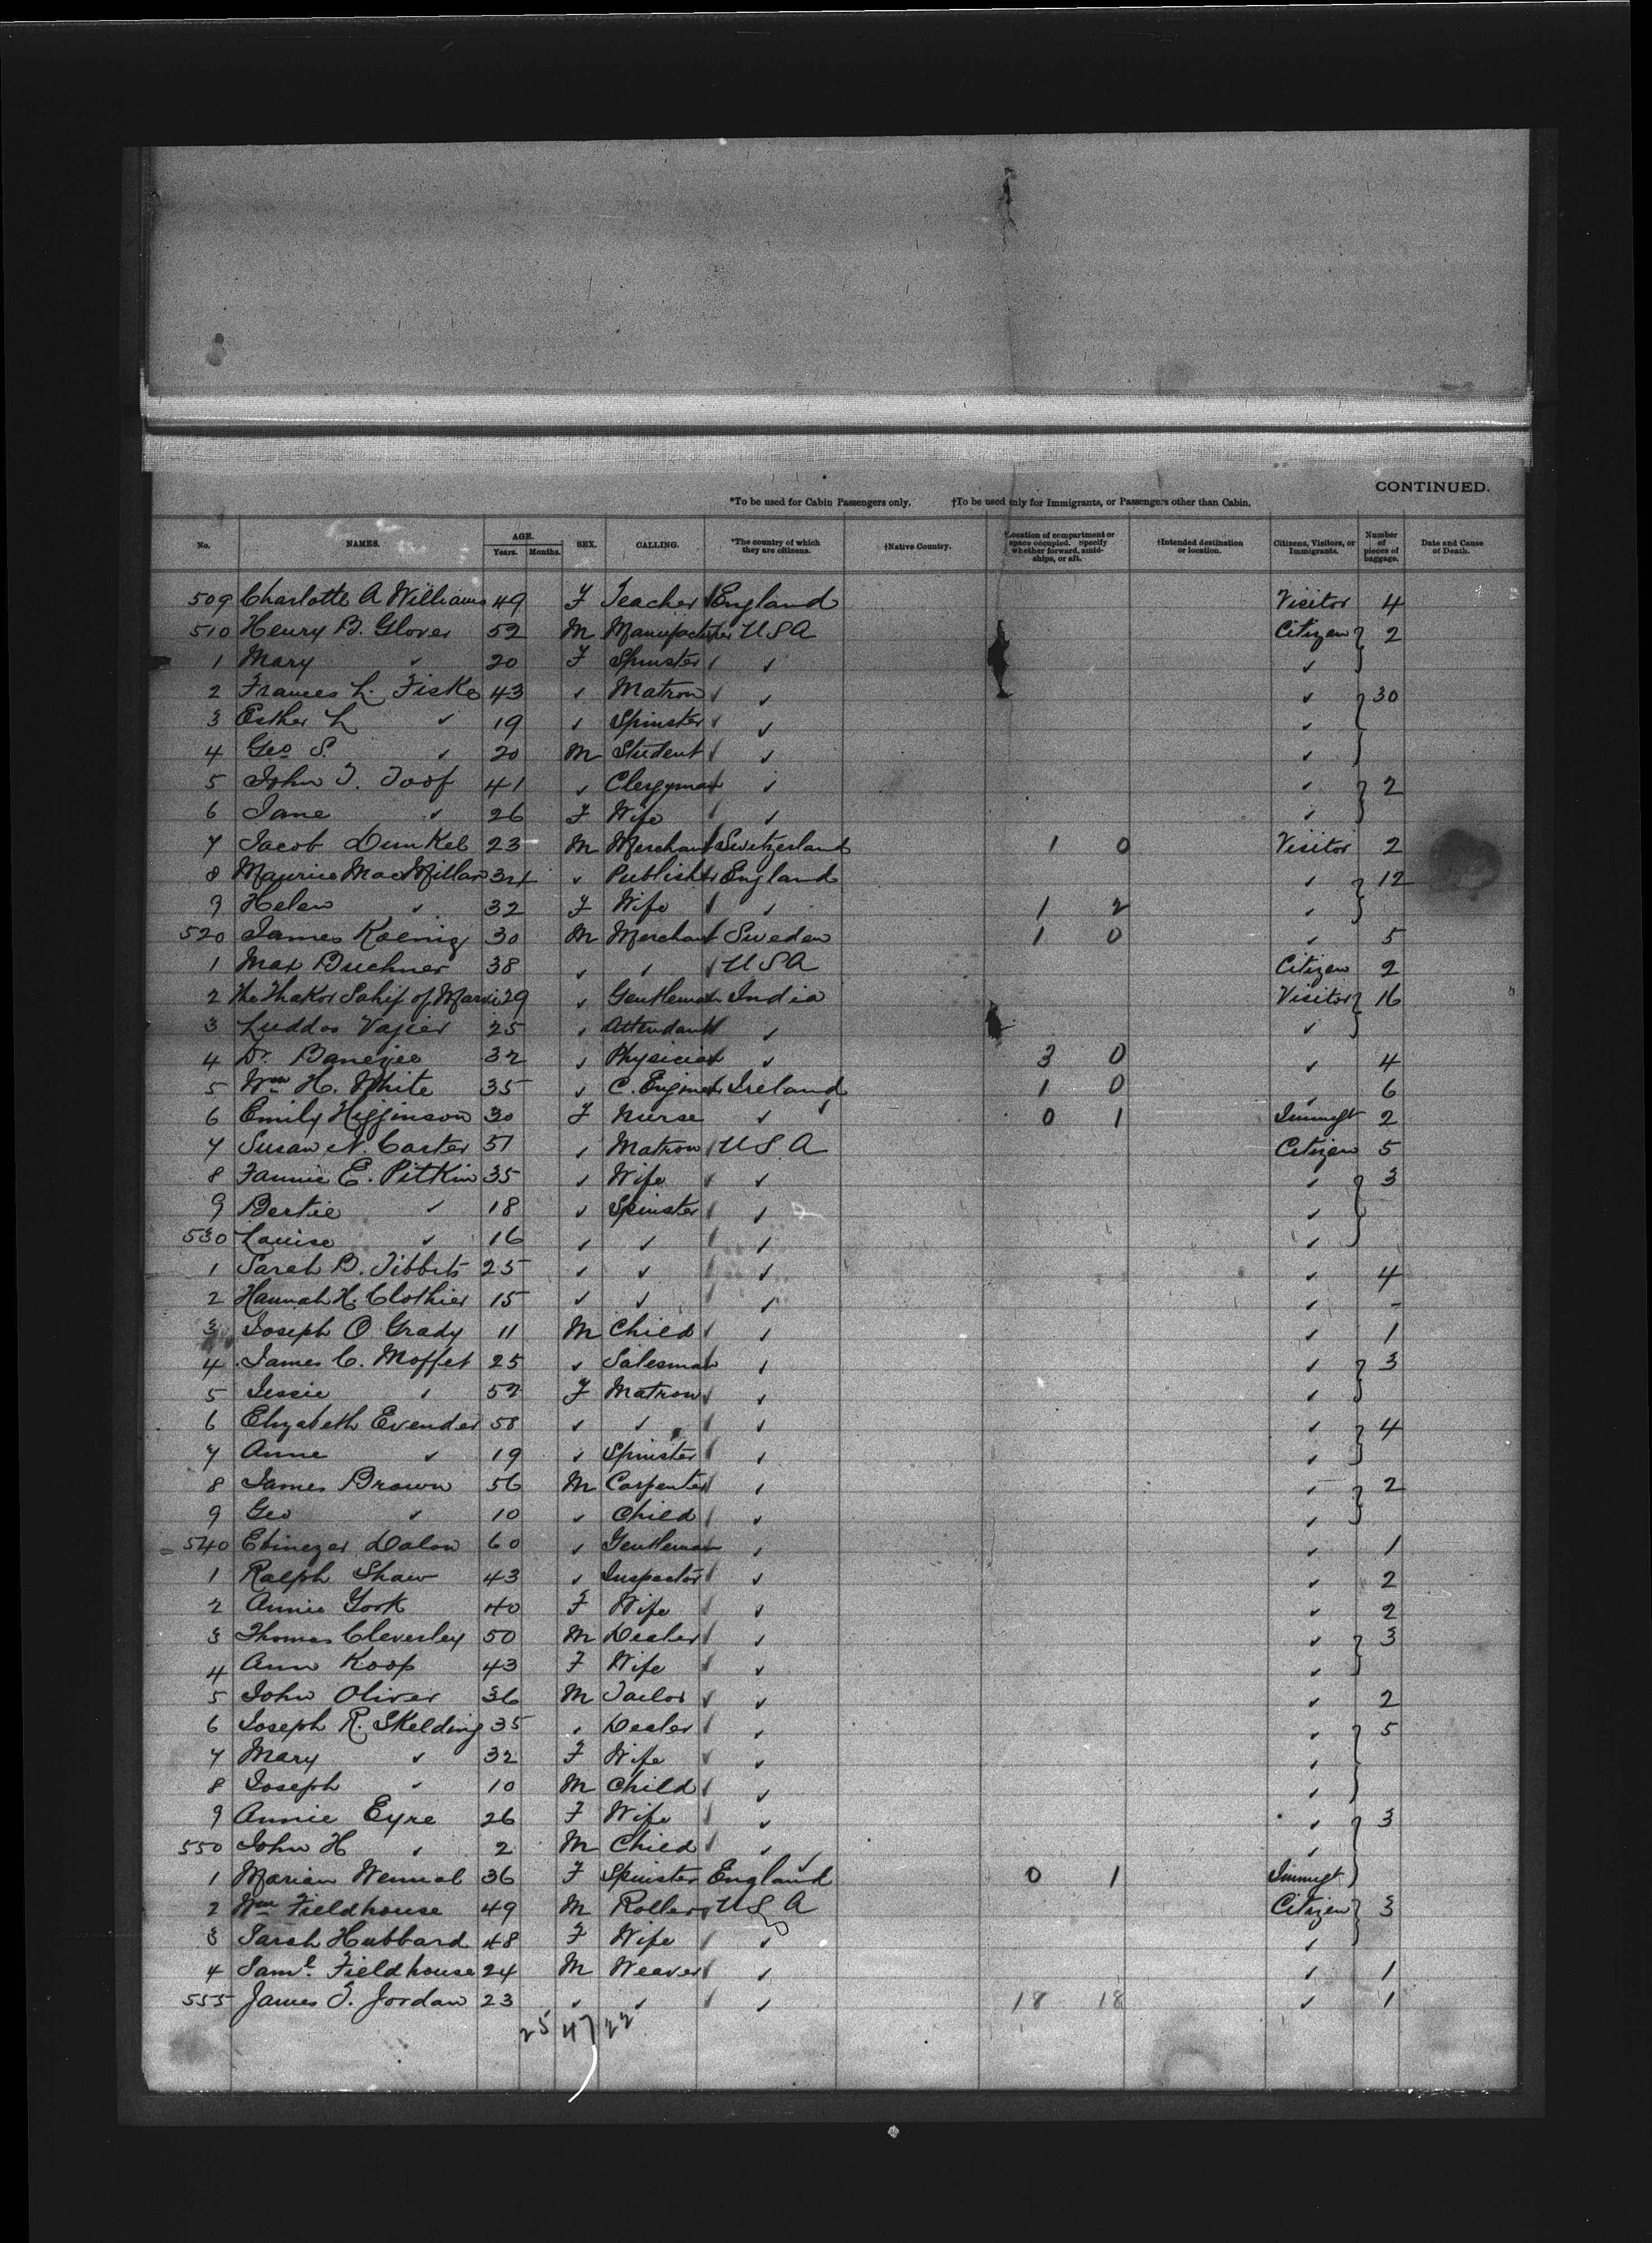 CONTINUED.
*To be used for Cabin Passengers only. †To be used only for Immigrants, or Passengers other than Cabin.
No. NAMES. AGE. Years. Months. SEX. CALLING. *The country of which they are citizens. †Native Country. †Location of compartment or space occupied. Specify whether forward, amidships, or aft. †Intended destination or location. Citizens, Visitors, or Immigrants. Number of pieces of baggage. Date and Cause of Death.
509 Charlotte A Williams 49 F Teacher England Visitor 4
510 Henry B. Glover 52 M Manufacturer USA Citizen 2
1 Mary ✓ 20 F Spinster ✓ ✓
2 Frances L. Fiske 43 ✓ Matron ✓ ✓ 30
3 Esther L ✓ 19 ✓ Spinster ✓ ✓
4 Geo S. ✓ 20 M Student ✓ ✓
5 John T. Toof 41 ✓ Clergyman ✓ ✓ 2
6 Jane ✓ 26 F Wife ✓ ✓
7 Jacob Dunkel 23 M Merchant Switzerland 1 0 Visitor 2
8 Maurice MacMillan 34 ✓ Publisher England ✓ 12
9 Helen ✓ 32 F Wife ✓ 1 2 ✓
520 James Koenig 30 M Merchant Sweden 1 0 ✓ 5
1 Max Buchner 38 ✓ ✓ USA Citizen 2
2 The Thakor Sahif of 29 ✓ Gentleman India Visitor 16
3 Luddoo Vajier 25 ✓ Attendant ✓ ✓
4 Dr. Banerjee 32 ✓ Physician ✓ 3 0 ✓ 4
5 Wm H. White 35 ✓ C. Engineer Ireland 1 0 ✓ 6
6 Emily Higginson 30 F Nurse ✓ 0 1 Immgt 2
7 Susan N. Carter 51 ✓ Matron USA Citizen 5
8 Fannie E. Pitkin 35 ✓ Wife ✓ ✓ 3
9 Bertie ✓ 18 ✓ Spinster ✓ ✓
530 Louise ✓ 16 ✓ ✓ ✓ ✓
1 Sarah B. Tibbits 25 ✓ ✓ ✓ ✓ 4
2 Hannah H. Clothier 15 ✓ ✓ ✓ ✓ -
3 Joseph O Grady 11 M Child ✓ ✓ 1
4 James C. Moffet 25 ✓ Salesman ✓ ✓ 3
5 Jessie ✓ 52 F Matron ✓ ✓
6 Elizabeth Evender 58 ✓ ✓ ✓ ✓ 4
7 Anne ✓ 19 ✓ Spinster ✓ ✓
8 James Brown 56 M Carpenter ✓ ✓ 2
9 Geo ✓ 10 ✓ Child ✓ ✓
540 Ebinezer Dalon 60 ✓ Gentleman ✓ ✓ 1
1 Ralph Shaw 43 ✓ Inspector ✓ ✓ 2
2 Annie York 40 F Wife ✓ ✓ 2
3 Thomas Cleverley 50 M Dealer ✓ ✓ 3
4 Ann Koop 43 F Wife ✓ ✓
5 John Oliver 36 M Tailor ✓ ✓ 2
6 Joseph R. Skelding 35 ✓ Dealer ✓ ✓ 5
7 Mary ✓ 32 F Wife ✓ ✓
8 Joseph ✓ 10 M Child ✓ ✓
9 Annie Eyre 26 F Wife ✓ ✓ 3
550 John H ✓ 2 M Child ✓ ✓
1 Marian 36 F Spinster England 0 1 Immgt
2 Wm Fieldhouse 49 M Roller USA Citizen 3
3 Sarah Hubbard 48 F Wife ✓ ✓
4 Saml. Fieldhouse 24 M Weaver ✓ ✓ 1
555 James T. Jordan 23 ✓ ✓ ✓ 18 18 ✓ 1
25 47 22